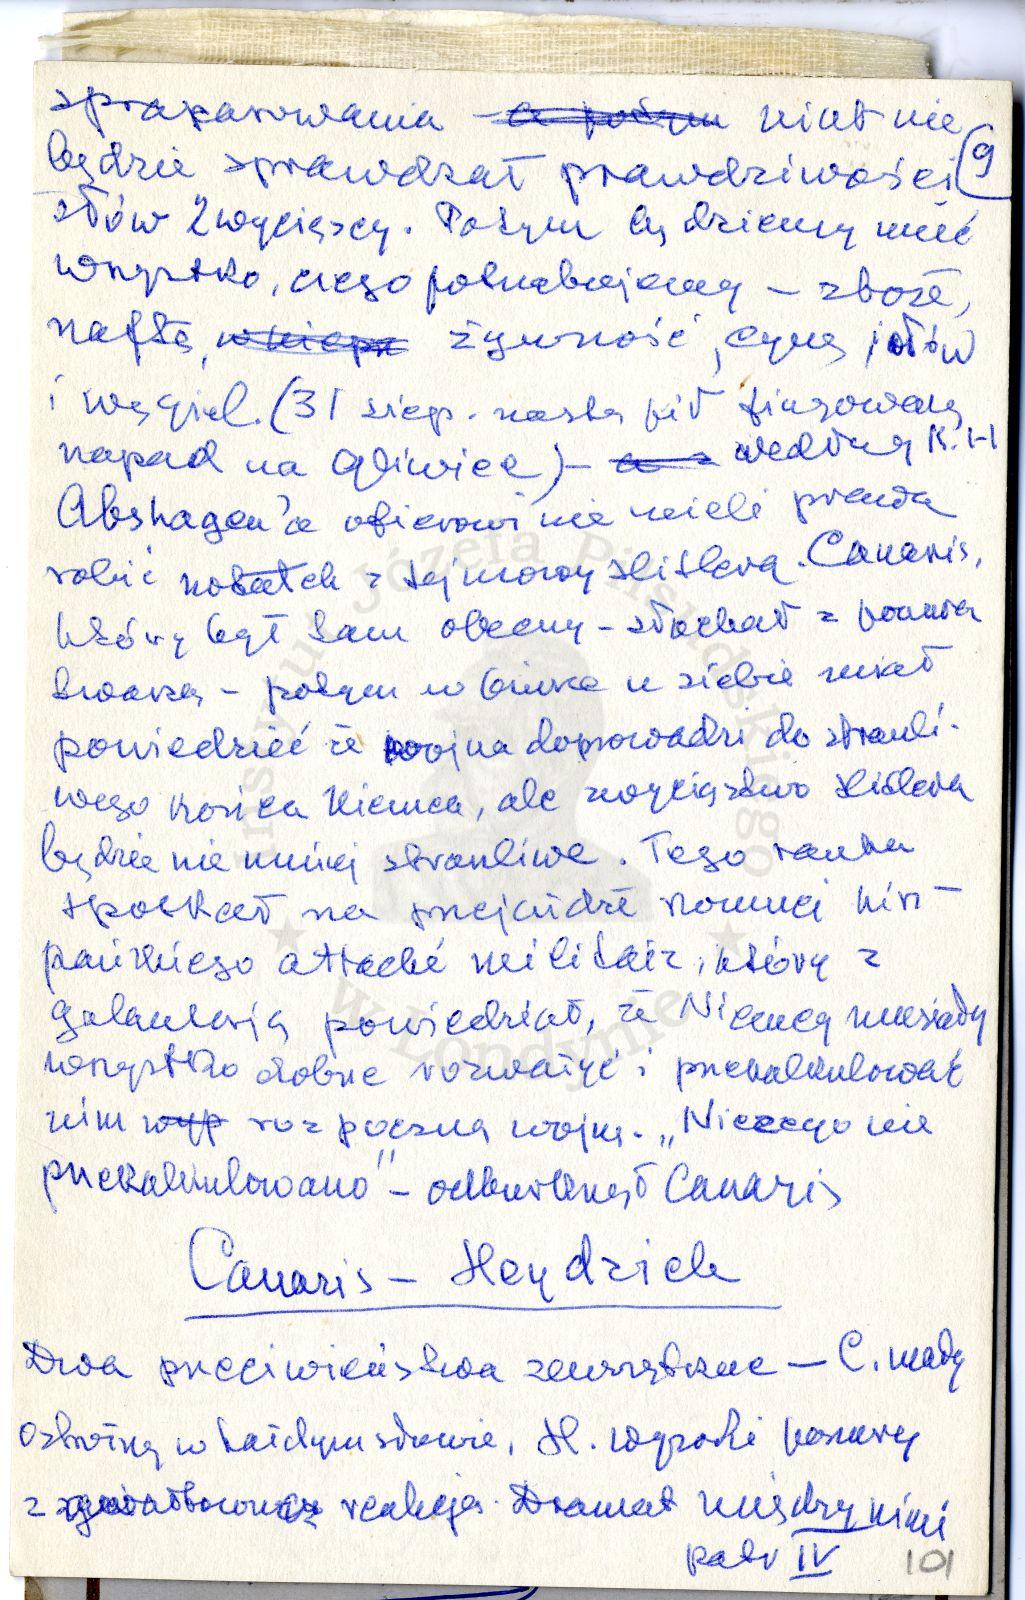 spraparowania – a potym nikt nie
będzie sprawdzał prawdziwości (9
słów zwycięzcy. Potym będziemy mieć
wszystko, czego potrzebujemy – zboże,
naftę, żywność, cynę, ołów
i węgiel. (31 sierp. nastąpił fingowany
napad na Gliwice) – według K.H
Abshagen'a oficerowi nie mieli prawa
robić notatek z tej mowy Hitlera. Canaris,
który był tam obecny – słuchał z ponurą
twarzą – potym w biurze u siebie miał
powiedzieć że wojna doprowadzi do straszli-
wego końca Niemca, ale zwycięztwo Hitlera
będzie nie mniej straszliwe. Tego ranka
spotkał na przejażdżce konnej hisz-
pańskiego attaché militair, który z
galanterią powiedział, że Niemcy musiały
wszystko dobrze rozważyć i przekalkulować
nim wyp rozpoczną wojnę. „Niczego nie
przekalkulowano" – odburknął Canaris
Canaris – Heydrich
Dwa przeciwieństwa zewnętrzne – C. mały
ostrożny w każdym słowie, H. wysoki ponury
z reakcją. Dramat między nimi
patr IV 101
Instytut Józefa Piłsudskiego
w Londynie